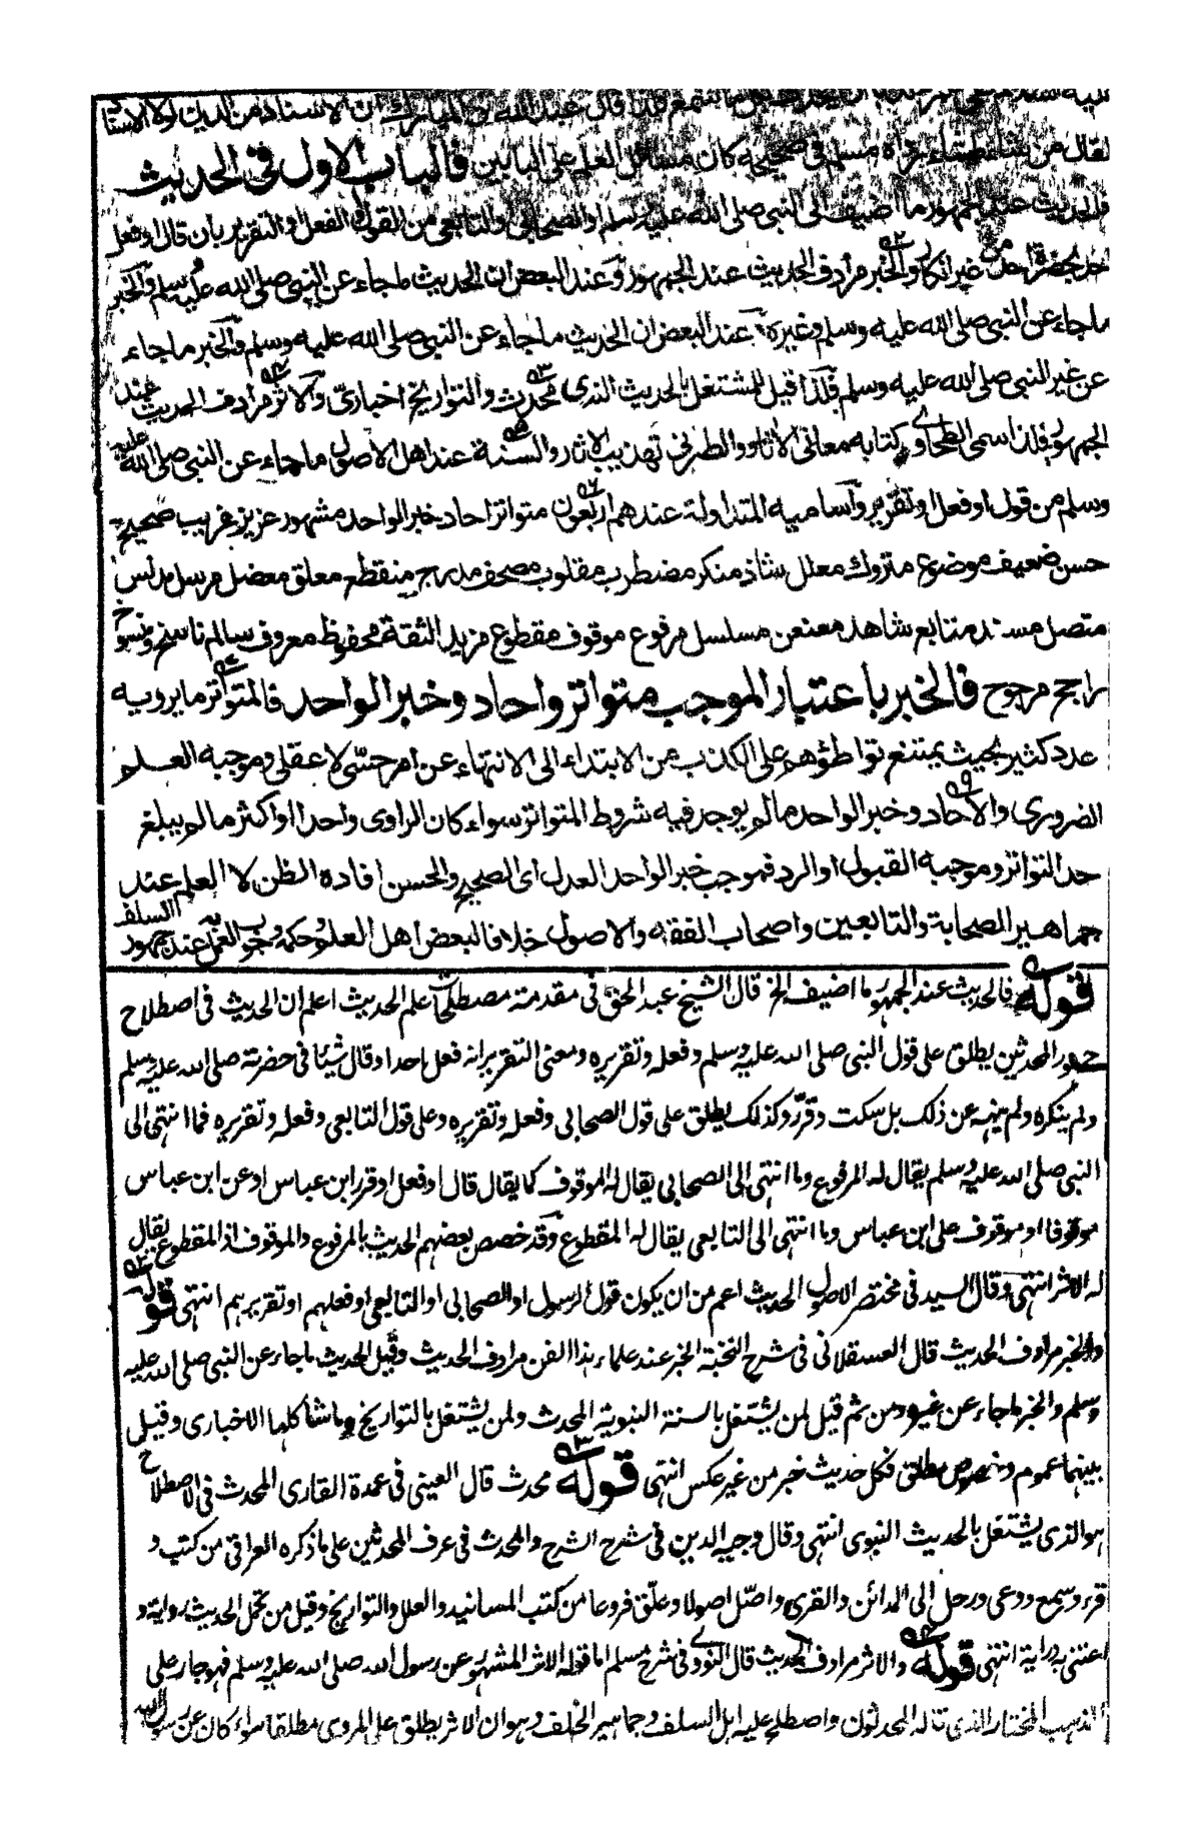 فلذا قال عبد الله بن المبارك ان الاسناد من الدين لولا الاسناد
لقال من شاء ما شاء رواه مسلم فى صحيحه كان مسائل العلم على البابين فالباب الاول فى الحديث
فالحديث عند الجمهور ما اضيف الى النبى صلى الله عليه وسلم او الصحابى او التابعى من القول او الفعل او التقرير بان قال او فعل
احد بحضرة احد من غير انكار والخبر مرادف الحديث عند الجمهور وعند البعض ان الحديث ما جاء عن النبى صلى الله عليه وسلم والخبر
ما جاء عن النبى صلى الله عليه وسلم وغيره عند البعض ان الحديث ما جاء عن النبى صلى الله عليه وسلم والخبر ما جاء
عن غير النبى صلى الله عليه وسلم فلذا قيل للمشتغل بالحديث النبوى محدث والتواريخ اخبارى والاثر مرادف الحديث عند
الجمهور فلذا سمى الطحاوى كتابه معانى الاثار والطبرى تهذيب الاثار والسنة عند اهل الاصول ما جاء عن النبى صلى الله عليه
وسلم من قول او فعل او تقرير وأساميه المتداولة عندهم اربعون متواتر احاد خبر الواحد مشهور عزيز غريب صحيح
حسن ضعيف موضوع متروك معلل شاذ منكر مضطرب مقلوب مصحف مدرج منقطع معلق معضل مرسل مدلس
متصل مسند متابع شاهد معنعن مسلسل مرفوع موقوف مقطوع مزيد الثقة محفوظ معروف سالم ناسخ ومنسوخ
راجح مرجوح فالخبر باعتبار الموجب متواتر واحاد وخبر الواحد فالمتواتر ما يرويه
عدد كثير بحيث يمتنع تواطؤهم على الكذب من الابتداء الى الانتهاء عن امر حسّى لا عقلى وموجبه العلم
الضرورى والاحاد وخبر الواحد ما لم يوجد فيه شروط المتواتر سواء كان الراوى واحدا او اكثر ما لم يبلغ
حد التواتر وموجبه القبول او الرد فموجب خبر الواحد العدل اى الصحيح والحسن افادة الظن لا العلم عند
جماهير الصحابة والتابعين واصحاب الفقه والاصول خلافا لبعض اهل العلم وحكمه وجوب العمل به عند جمهور السلف
قوله فالحديث عند الجمهور ما اضيف الخ قال الشيخ عبد الحق فى مقدمة مصطلحات علم الحديث اعلم ان الحديث فى اصطلاح
جمهور المحدثين يطلق على قول النبى صلى الله عليه وسلم وفعله وتقريره ومعنى التقرير انه فعل احد او قال شيئا فى حضرته صلى الله عليه وسلم
ولم ينكره ولم ينهه عن ذلك بل سكت وقرّر وكذلك يطلق على قول الصحابى وفعله وتقريره وعلى قول التابعى وفعله وتقريره فما انتهى الى
النبى صلى الله عليه وسلم يقال له المرفوع وما انتهى الى الصحابى يقال له الموقوف كما يقال قال او فعل او قرر ابن عباس او عن ابن عباس
موقوفا او موقوف على ابن عباس وما انتهى الى التابعى يقال له المقطوع وقد خصص بعضهم الحديث بالمرفوع والموقوف اذ المقطوع يقال
له الاثر انتهى وقال السيد فى مختصر الاصول الحديث اعم من ان يكون قول الرسول او الصحابى او التابعى او فعلهم او تقريرهم انتهى قوله
والخبر مرادف الحديث قال العسقلانى فى شرح النخبة الخبر عند علماء هذا الفن مرادف الحديث وقيل الحديث ما جاء عن النبى صلى الله عليه
وسلم والخبر ما جاء عن غيره ومن ثم قيل لمن يشتغل بالسنة النبوية المحدث ولمن يشتغل بالتواريخ وما شاكلها الاخبارى وقيل
بينهما عموم وخصوص مطلق فكل حديث خبر من غير عكس انتهى قوله محدث قال العينى فى عمدة القارى المحدث فى الاصطلاح
هو الذى يشتغل بالحديث النبوى انتهى وقال وجيه الدين فى شرح الشرح والمحدث فى عرف المحدثين على ما ذكره العراقى من كتب و
قرء وسمع ووعى ورحل الى المدائن والقرى واصّل اصولا وعلّق فروعا من كتب المسانيد والعلل والتواريخ وقيل من تحمل الحديث رواية و
اعتنى به دراية انتهى قوله والاثر مرادف الحديث قال النووى فى شرح مسلم اما قوله الاثر المشهور عن رسول الله صلى الله عليه وسلم فهو جار على
المذهب المختار الذى قاله المحدثون واصطلح عليه اهل السلف وجماهير الخلف وهو ان الاثر يطلق على المروى مطلقا سواء كان عن رسول الله